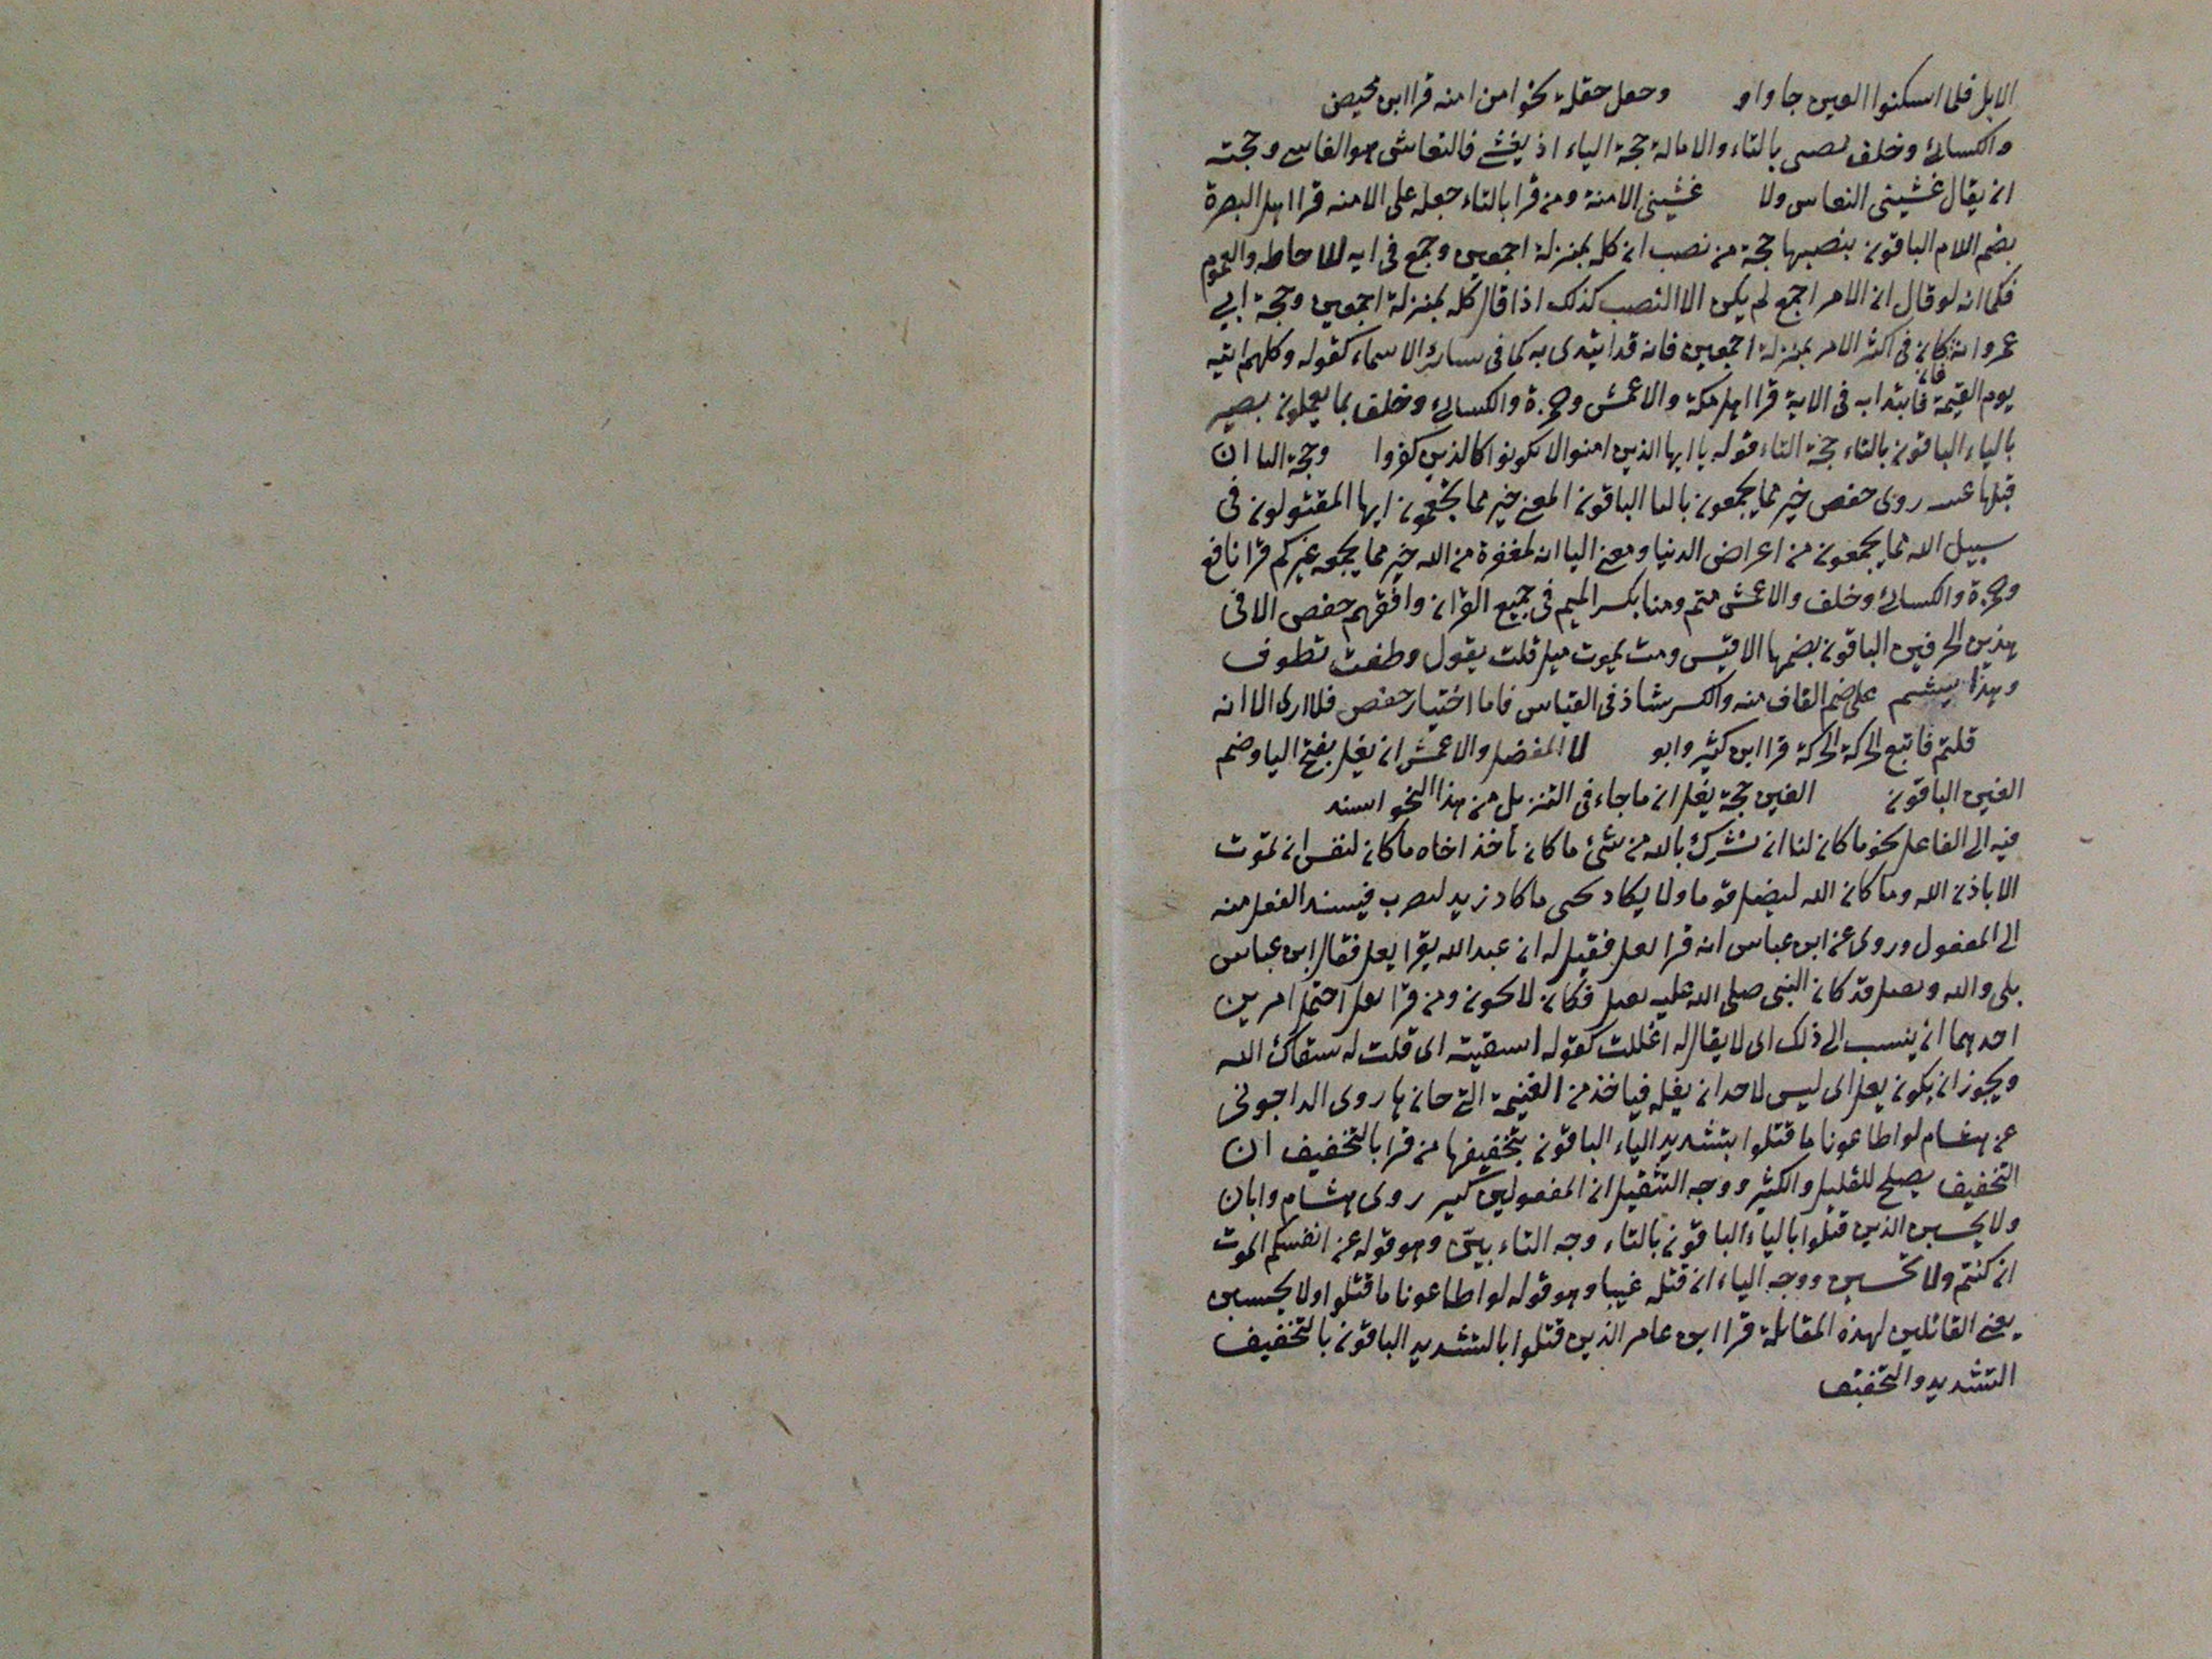 الابل فلما اسكنوا العين جاواو وحعل حقلة نحو امن امنه قرا ابن محيصن
والكسائى وخلف تصى بالتاء والامالة حجة الياء اذ يغشى فالنعاس هو الغاسى وحجته
ان يقال غشينى النعاس ولا غشينى الامنة ومن قرا بالتاء جعله على الامنه قرا اهل البصرة
بضم اللام الباقون بنصبها حجة من نصب ان كله بمنزلة اجمعين وجمع فى ايه للاحاطه والعموم
فكما انه لو قال ان الامر اجمع لم يكن الا النصب كذلك اذا قال كله بمنزلة اجمعين وحجة ابي
عمرو انه كان فى اكثر الامر بمنزلة اجمعين فانه قد ابتدى به كما فى سائر الاسماء كقوله وكلهم اتيه
يوم القيمة فابتدا به فى الاية قرا اهل مكة والاعمش وحمزة والكسائى وخلف بما يعملون بصير
بالياء الباقون بالتاء حجة التاء قوله يا ايها الذين امنوا لا تكونوا كالذين كفروا وحجة اليا ان
قبلها روى حفص خير مما يجمعون باليا الباقون المعنى خير مما تجمعون ايها المقتولون فى
سبيل الله مما يجمعون من اعراض الدنيا ومعنى اليا ان لمغفرة من الله خير مما يجمعه غيركم قرا نافع
وحمزة والكسائى وخلف والاعمش متم ومتنا بكسر الميم فى جميع القران وافقهم حفص الا فى
هذين الحرفين الباقون بضمها الاقيس ومت تموت ميل قلت يقول وطفت تطوف
وبهذا على ضم القاف منه والكسر شاذ فى القياس فاما اختيار حفص فلا ارى الا انه
قلتم فاتبع الحركة الحركة قرا ابن كثير وابو لا المفضل والاعمش ان يغل بفتح اليا وضم
الغين الباقون الغين حجة يغل ان ما جاء فى التنزيل من هذا النحو اسند
فيه الى الفاعل نحو ما كان لنا ان نشرك بالله من شئ ما كان ياخذ اخاه ما كان لنفس ان تموت
الا باذن الله وما كان الله ليضل قوما ولا يكاد يحى ما كاد زيد ليضرب فيسند الفعل منه
الى المفعول وروى عن ابن عباس انه قرا يعل فقيل له ان عبد الله يقرا يعل فقال ابن عباس
بلى والله ويصل قد كان النبى صلى الله عليه يعىل فكان لا يكون ومن قرا يعل احتمل امرين
احدهما ان ينسب الى ذلك اى لا يقال له اغللت كقوله اسقيته اى قلت له سقاك الله
ويجوز ان يكون يعل اى ليس لاحد ان يغله فياخذ من الغنيمة التى حازها روى الداجونى
عن هشام لو اطاعونا ما قتلوا بتشديد الياء الباقون بتخفيفها من قرا بالتخفيف ان
التخفيف يصلح للقليل والكثير ووجه التثقيل ان المفعولين كثير روى هشام وابان
ولا يحسبن الذين قتلوا بالياء الباقون بالتاء وجه التاء بيّن وهو قوله عن انفسكم الموت
ان كنتم ولا تحسبن ووجه الياء ان قبله غيبا وهو قوله لو اطاعونا ما قتلوا ولا يحسبن
يعنى القائلين لهذه المقابلة قرا ابن عامر الذين قتلوا بالتشديد الباقون بالتخفيف
التشديد والتخفيف